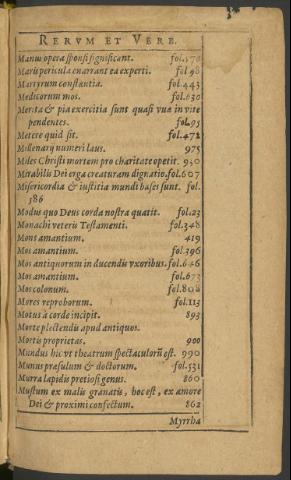 RERVM ET VERB.
Manus opera sponsi significant. fol.570
Maris pericula enarrant ea experti. fol.98
Martyrum constantia. fol.443
Medicorum mos. fol.630
Merita & pia exercitia sunt quasi vua in vite
pendentes. fol.95
Metere quid sit. fol.472
Millenarij numeri laus. 975
Miles Christi mortem pro charitate opetit. 930
Mirabilis Dei erga creaturam dignatio. fol.607
Misericordia & iustitia mundi bases sunt. fol.
586
Modus quo Deus corda nostra quatit. fol.23
Monachi veteris Testamenti. fol.348
Mons amantium. 419
Mos amantium. fol.396
Mos antiquorum in ducendis vxoribus. fol.646
Mos amantium. fol.673
Mos colonum. fol.808
Mores reproborum. fol.113
Motus à corde incipit. 893
Morte plectendi apud antiquos.
Mortis proprietas. 900
Mundus hic vt theatrum spectaculorũ est. 990
Munus præsulum & doctorum. fol.531
Murra lapidis pretiosi genus. 860
Mustum ex malis granatis, hoc est, ex amore
Dei & proximi confectum. 862
Myrrha